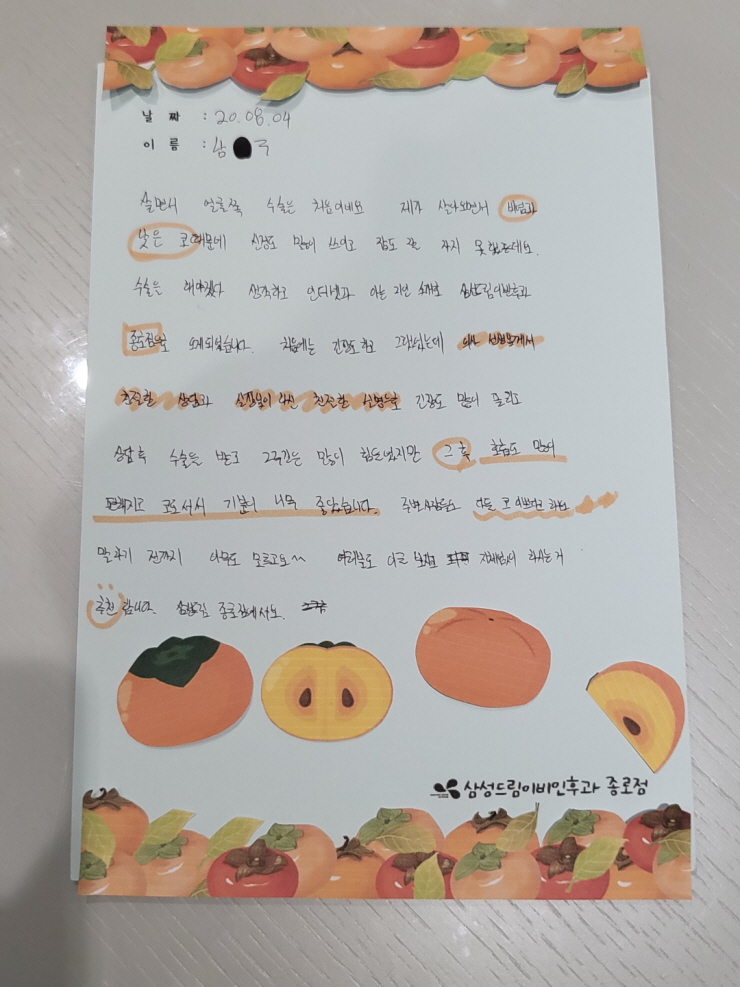 날 짜 : 20.08.04
이 름 : 남 구
살면서 얼굴쪽 수술은 처음이네요 제가 살아오면서 비염과
낮은 코때문에 신경도 많이 쓰이고 잠도 잘 자지 못했는데요.
수술을 해야겠다 생각하고 인터넷과 아는 지인 소개로 삼성드림이비인후과
종로점으로 오게되었습니다. 처음에는 긴장도 하고 그랬었는데 의사 선생님께서
친절한 상담과 실장님의 친절한 설명으로 긴장도 많이 풀리고
상담 후 수술을 받고 2주간은 많이 힘들었지만 그 후 호흡도 많이
편해지고 코도 서서 기분이 너무 좋았습니다. 주변사람들도 다들 코 이쁘다고 하고
말하기 전까지 아무도 모르고요~~ 여러분도 자연스럽게 하시는거
추천 합니다. 삼성드림 종로점에서요.
삼성드림이비인후과 종로점